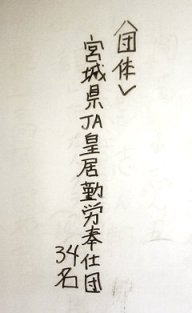 〈団体〉
宮城県JA皇居勤労奉仕団
34名